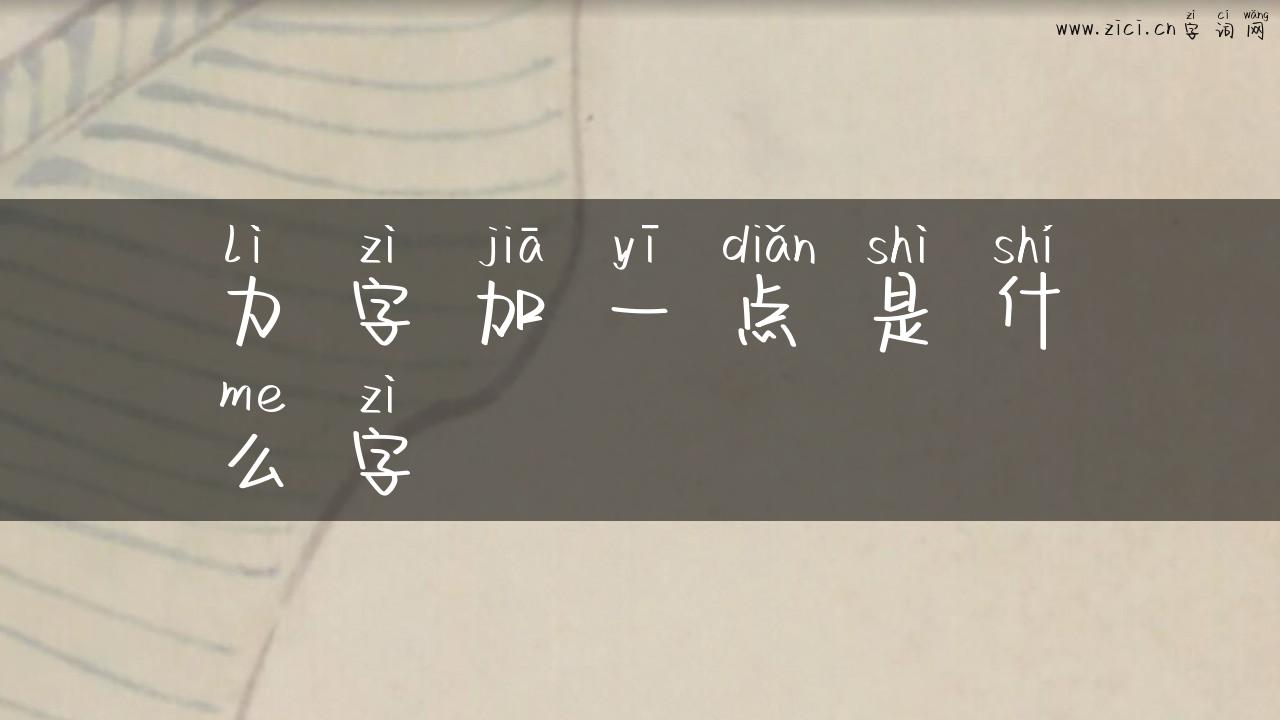 www.zici.cn zì cí wǎng
字 词 网
lì zì jiā yī diǎn shì shí
力 字 加 一 点 是 什
me zì
么 字